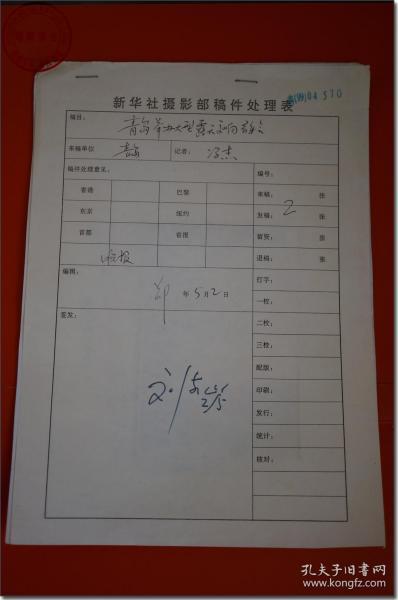 新华社摄影部稿件处理表
稿目：
青岛举办大型露天
来稿单位 青岛 记者： 冯杰
稿件处理意见： 编号：
香港 巴黎 来稿： 张
东京 纽约 发稿： 2 张
首都 省报 留资： 张
晚报 退稿： 张
编辑： 打字：
年 5 月 2 日 一校：
签发： 二校：
三校：
配版：
印刷：
发行：
统计：
核对：
孔夫子旧书网
www.kongfz.com